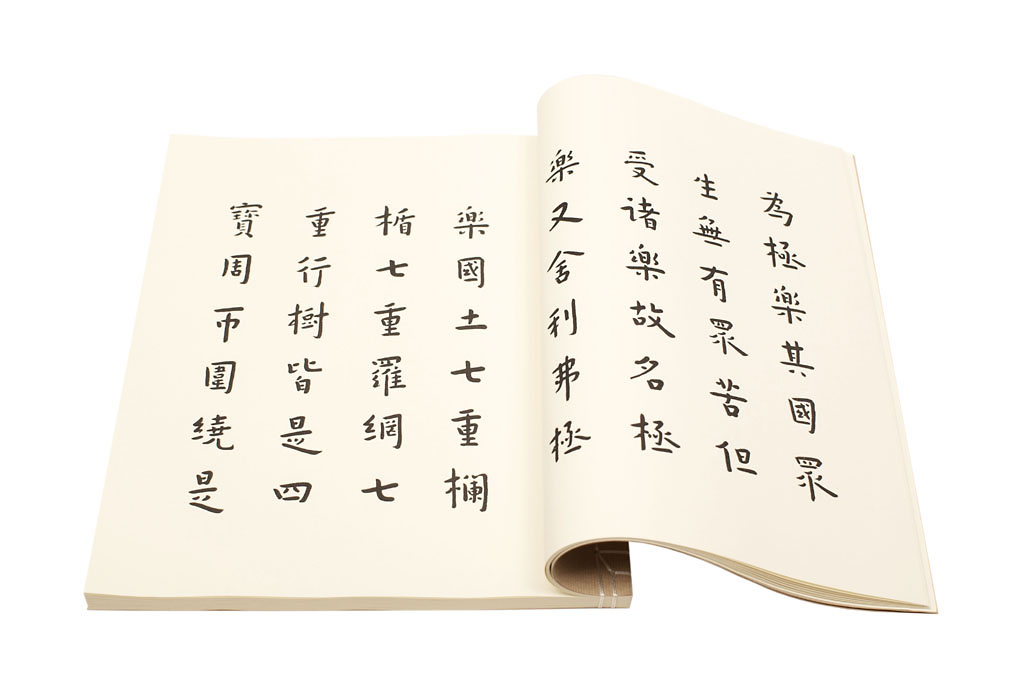 為極樂其國眾
生無有眾苦但
受諸樂故名極
樂又舍利弗極
樂國土七重欄
楯七重羅網七
重行樹皆是四
寶周帀圍繞是